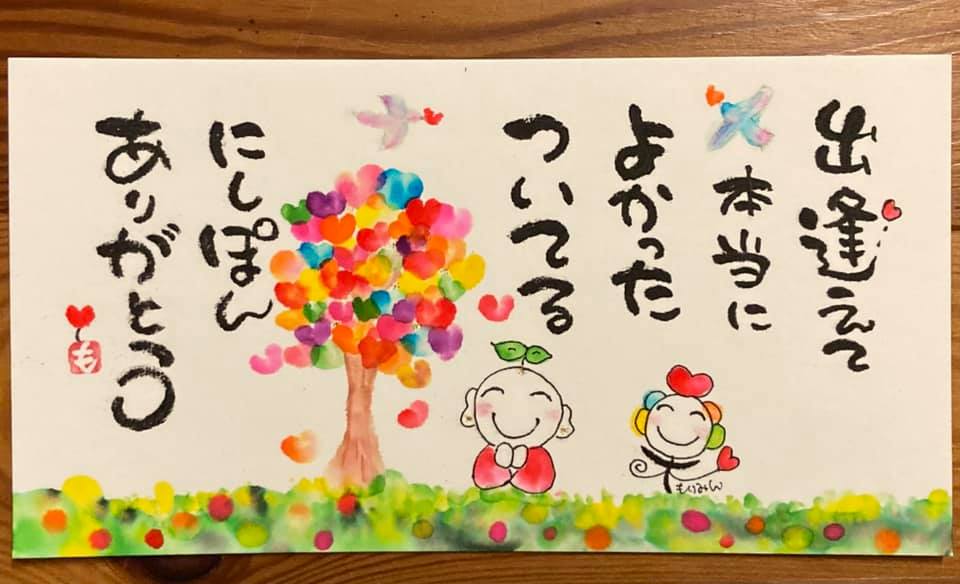 出逢えて
本当に
よかった
ついてる
にしぽん
ありがとう
も
もりみん